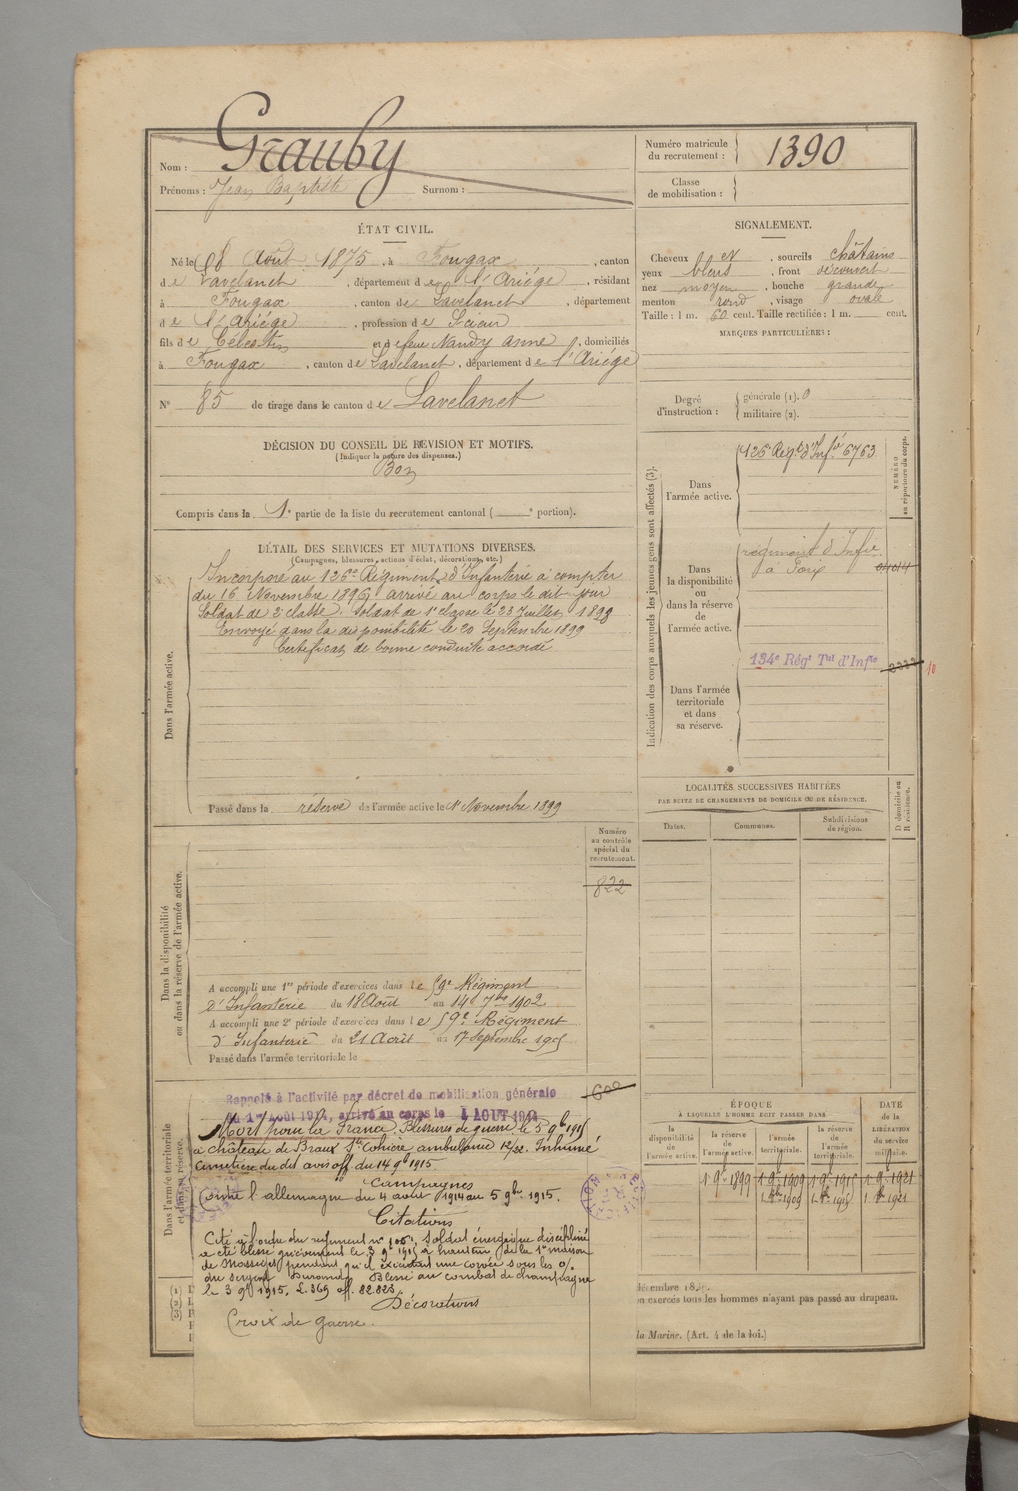 Nom : Grauby
Prénoms : Jean Baptiste Surnom :
Numéro matricule du recrutement : 1390
Classe de mobilisation :
ÉTAT CIVIL.
Né le 8 Août 1875, à Fougax, canton
de Lavelanet, département de l'Ariége, résidant
à Fougax, canton de Lavelanet, département
de l'Ariége, profession de Scieur
fils de Célestin et de feue Naudy Anne, domiciliés
à Fougax, canton de Lavelanet, département de l'Ariége
N° 85 de tirage dans le canton de Lavelanet
SIGNALEMENT.
Cheveux et, sourcils châtains
yeux bleus, front découvert
nez moyen, bouche grande
menton rond, visage ovale
Taille : 1 m. 60 cent. Taille rectifiée : 1 m. cent.
MARQUES PARTICULIÈRES :
Degré d'instruction : générale (1). 0
militaire (2).
DÉCISION DU CONSEIL DE REVISION ET MOTIFS.
(Indiquer la nature des dispenses.)
Bon
Compris dans la 1e partie de la liste du recrutement cantonal ( e portion).
DÉTAIL DES SERVICES ET MUTATIONS DIVERSES.
(Campagnes, blessures, actions d'éclat, décorations, etc.)
Dans l'armée active.
Incorporé au 126e Régiment d'Infanterie à compter
du 16 Novembre 1896, arrivé au corps le dit jour
Soldat de 2e classe. Soldat de 1e classe le 23 Juillet 1898
Envoyé dans la disponibilité le 20 Septembre 1899
Certificat de bonne conduite accordé
Passé dans la réserve de l'armée active le 1 Novembre 1899
Indication des corps auxquels les jeunes gens sont affectés (3).
NUMÉRO au répertoire du corps.
Dans l'armée active.
126e Régt d'Infie 6763
Dans la disponibilité ou dans la réserve de l'armée active.
régiment d'Infie
à Foix
Dans l'armée territoriale et dans sa réserve.
134e Régt Tal d'Infie
10
LOCALITÉS SUCCESSIVES HABITÉES
PAR SUITE DE CHANGEMENTS DE DOMICILE OU DE RÉSIDENCE.
D domicile ou R résidence.
Dates. Communes. Subdivisions de région.
Dans la disponibilité ou dans la réserve de l'armée active.
Numéro au contrôle spécial du recrutement.
822
A accompli une 1re période d'exercices dans le 59e Régiment
d'Infanterie du 18 Août au 14 7bre 1902
A accompli une 2e période d'exercices dans le 59e Régiment
d'Infanterie du 21 Août au 17 Septembre 1905
Passé dans l'armée territoriale le
Dans l'armée territoriale et dans sa réserve.
Rappelé à l'activité par décret de mobilisation générale
du 1er Août 1914, arrivé au corps le 4 AOUT 1914
Mort pour la France, Blessures de guerre le 5 9bre 1915
à château de Braux Ste Cohière ambulance 12/22. Inhumé
cimetière du dit avis off du 14 9bre 1915
Campagnes
Contre l'allemagne du 4 août 1914 au 5 9bre 1915.
Citations
Cité à l'ordre du régiment n° 106, Soldat énergique discipliné
a été blessé grièvement le 3 9bre 1915 à hauteur de la 1re maison
de Massiges pendant qu'il exécutait une corvée sous les o/.
du sergent Durand. Blessé au combat de champagne
le 3 9bre 1915. L. 369 off. 82.823.
Décorations
Croix de guerre.
ÉPOQUE
À LAQUELLE L'HOMME DOIT PASSER DANS
la disponibilité de l'armée active. la réserve de l'armée active. l'armée territoriale. la réserve de l'armée territoriale.
DATE de la LIBÉRATION du service militaire.
1 9bre 1899 1 9bre 1909 1 9bre 1915 1 9bre 1921
1 9bre 1909 1 9bre 1915 1 9bre 1921
(1)
(2)
(3)
exercés tous les hommes n'ayant pas passé au drapeau.
la Marine. (Art. 4 de la loi.)